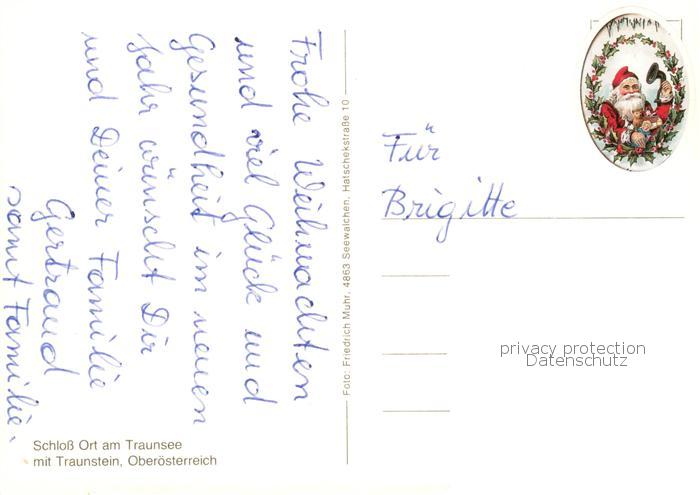 Frohe Weihnachten
und viel Glück und
Gesundheit im neuen
Jahr wünscht Dir
und Deiner Familie
Gertraud
samt Familie.
Für
Brigitte
Foto: Friedrich Muhr, 4863 Seewalchen, Hatschekstraße 10
privacy protection
Datenschutz
Schloß Ort am Traunsee
mit Traunstein, Oberösterreich